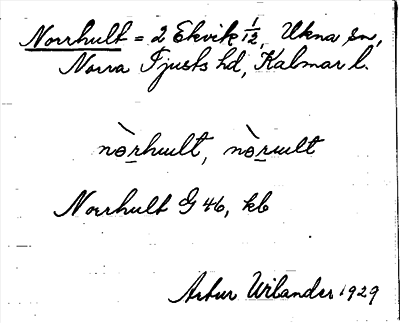 Norrhult = 2 Ekvik 1/2, Ukna sn,
Norra Tjusts hd, Kalmar l.
nòrhult, nòrult
Norrhult G 46, kb
Artur Wilander 1929